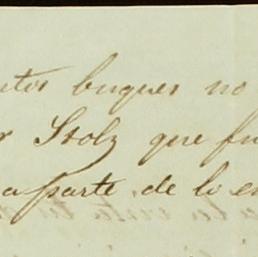 buques no
Stolz que fu
a parte de lo en